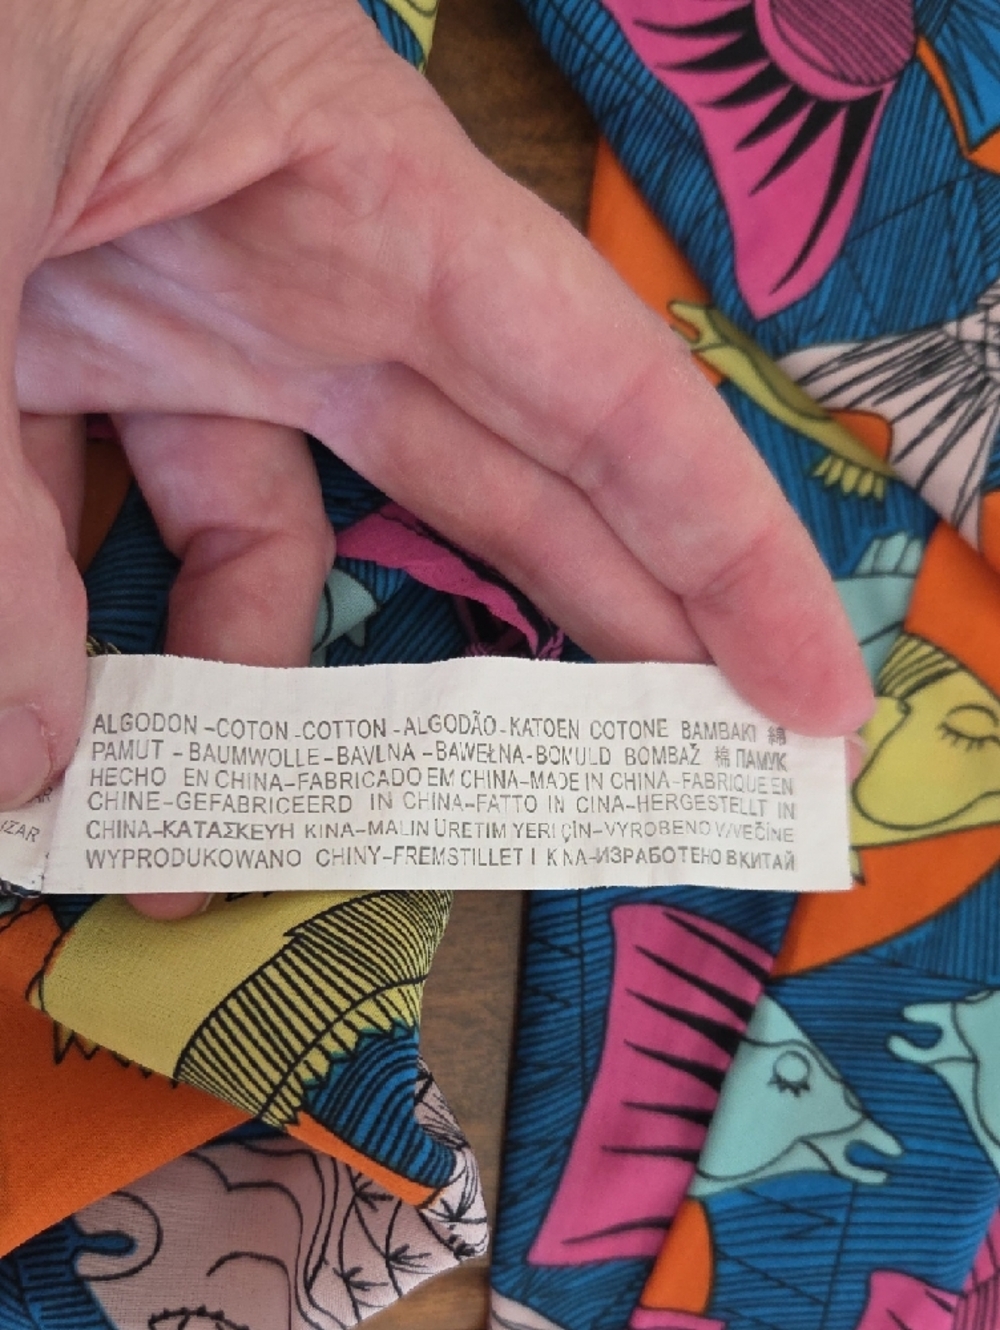 ALGODON -COTON -COTTON -ALGODÃO-KATOEN COTONE BAMBAKI 綿
PAMUT - BAUMWOLLE-BAVLNA -BAWEŁNA-BOMULD BOMBAŽ 棉 ПАМУК
HECHO EN CHINA-FABRICADO EM CHINA-MADE IN CHINA-FABRIQUE EN
CHINE-GEFABRICEERD IN CHINA-FATTO IN CINA-HERGESTELLT IN
CHINA-ΚΑΤΑΣΚΕΥΗ ΚΙΝΑ-MALIN ÜRETIM YERI ÇİN-VYROBENO V/VEČÍNE
WYPRODUKOWANO CHINY-FREMSTILLET I KINA-ИЗРАБОТЕНО В КИТАЙ
IZAR